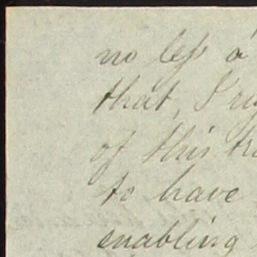 no less a
that, I
of this
to have
enabling